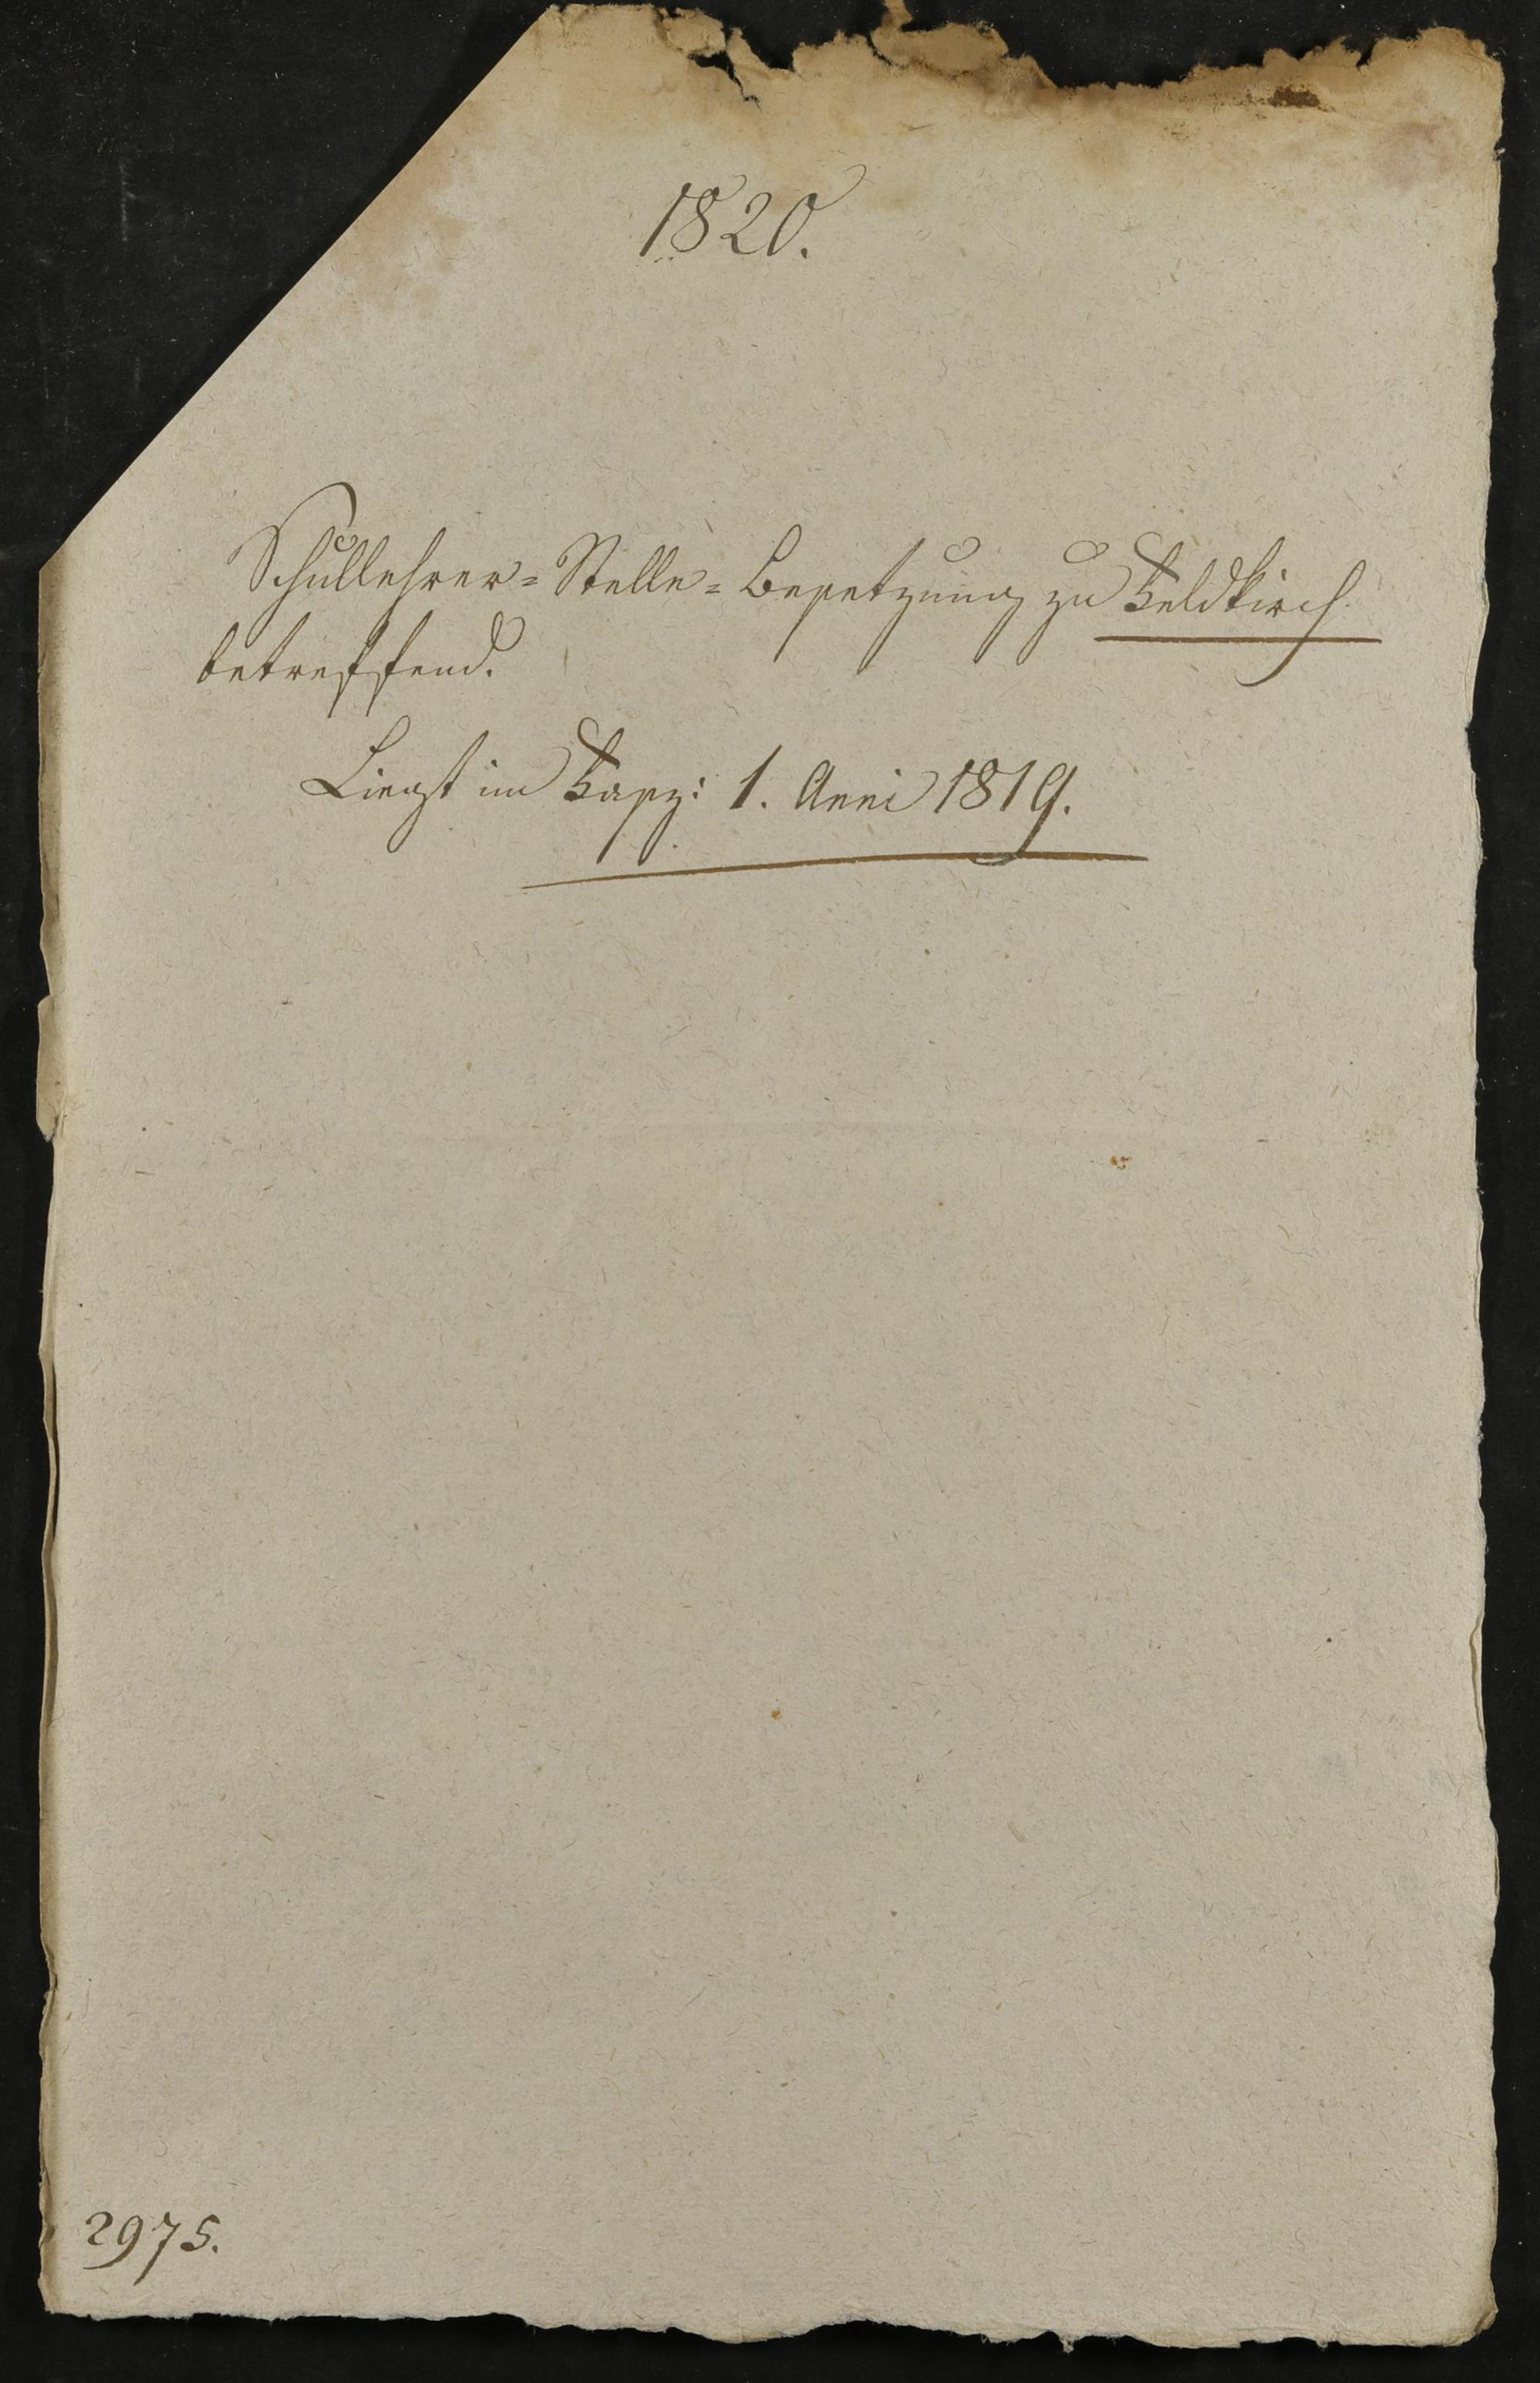 1820.
Schullehrer=Stelle=Besetzung zu Feldkirch
betreffend.
Liegt im Fasz: 1. Anni 1819.
2975.